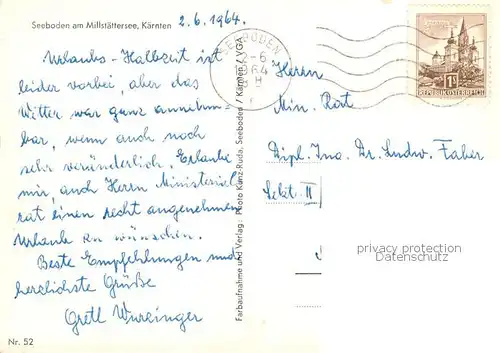 Seeboden am Millstättersee, Kärnten
2.6.1964.
Urlaubs-Halbzeit ist
leider vorbei, aber das
Wetter war ganz annehm-
bar, wenn auch noch
sehr veränderlich. Erlaube
mir, auch Herrn Ministerial
rat einen recht angenehmen
Urlaub zu wünschen.
Beste Empfehlungen und
herzlichste Grüße
Gretl
Nr. 52
Farbaufnahme und Verlag: Photo Kunz-Rudi, Seeboden / Kärnten / VGA
SEEBODEN
2-6
64
REPUBLIK ÖSTERREICH
1S
Herrn
Min. Rat
Dipl. Ing. Dr. Ludw. Faber
Sekt. II
privacy protection
Datenschutz